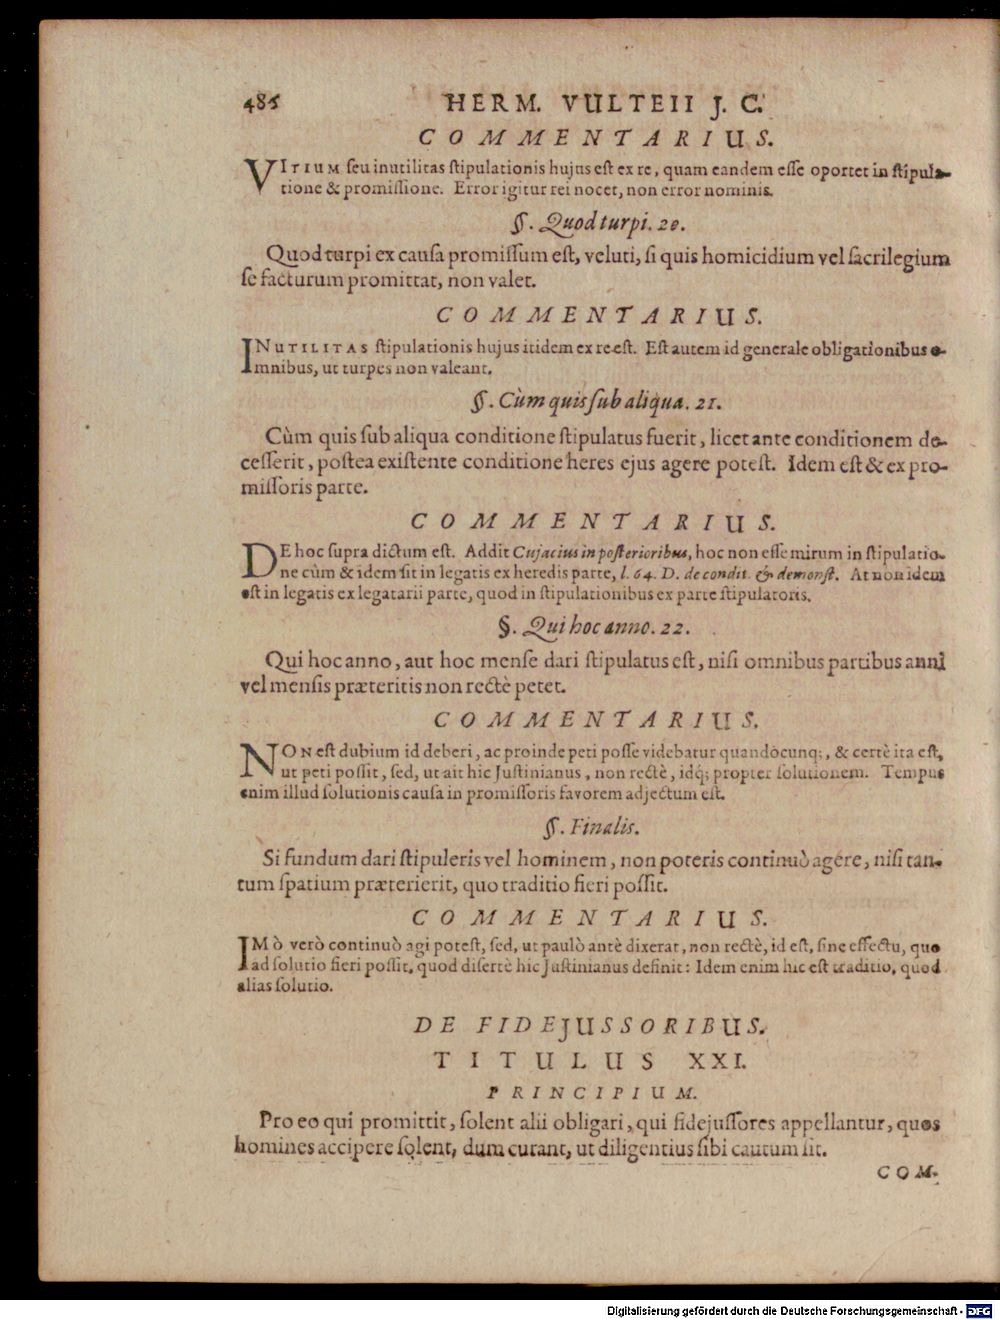 486 HERM. VULTEII J. C.
COMMENTARIUS.
VITIUM ſeu inutilitas ſtipulationis hujus eſt ex re, quam eandem eſſe oportet in ſtipula-
tione & promiſſione. Error igitur rei nocet, non error nominis.
§. Quod turpi. 20.
Quod turpi ex cauſa promiſſum eſt, veluti, ſi quis homicidium vel ſacrilegium
ſe facturum promittat, non valet.
COMMENTARIUS.
INUTILITAS ſtipulationis hujus itidem ex re eſt. Eſt autem id generale obligationibus o-
mnibus, ut turpes non valeant.
§. Cùm quis ſub aliqua. 21.
Cùm quis ſub aliqua conditione ſtipulatus fuerit, licet ante conditionem de-
ceſſerit, poſtea exiſtente conditione heres ejus agere poteſt. Idem eſt & ex pro-
miſſoris parte.
COMMENTARIUS.
DE hoc ſupra dictum eſt. Addit Cujacius in poſterioribus, hoc non eſſe mirum in ſtipulatio-
ne cùm & idem ſit in legatis ex heredis parte, l. 64. D. de condit. & demonſt. At non idem
eſt in legatis ex legatarii parte, quod in ſtipulationibus ex parte ſtipulatoris.
§. Qui hoc anno. 22.
Qui hoc anno, aut hoc menſe dari ſtipulatus eſt, niſi omnibus partibus anni
vel menſis præteritis non rectè petet.
COMMENTARIUS.
NON eſt dubium id deberi, ac proinde peti poſſe videbatur quandocunq;, & certè ita eſt,
ut peti poſſit, ſed, ut ait hic Juſtinianus, non rectè, idq; propter ſolutionem. Tempus
enim illud ſolutionis cauſa in promiſſoris favorem adjectum eſt.
§. Finalis.
Si fundum dari ſtipuleris vel hominem, non poteris continuò agere, niſi tan-
tum ſpatium præterierit, quo traditio fieri poſſit.
COMMENTARIUS.
IMò verò continuò agi poteſt, ſed, ut paulò antè dixerat, non rectè, id eſt, ſine effectu, quo
ad ſolutio fieri poſſit, quod diſertè hic Juſtinianus definit: Idem enim hic eſt traditio, quod
alias ſolutio.
DE FIDEJUSSORIBUS.
TITULUS XXI.
PRINCIPIUM.
Pro eo qui promittit, ſolent alii obligari, qui fidejuſſores appellantur, quos
homines accipere ſolent, dum curant, ut diligentius ſibi cautum ſit.
COM-
Digitalisierung gefördert durch die Deutsche Forschungsgemeinschaft - DFG